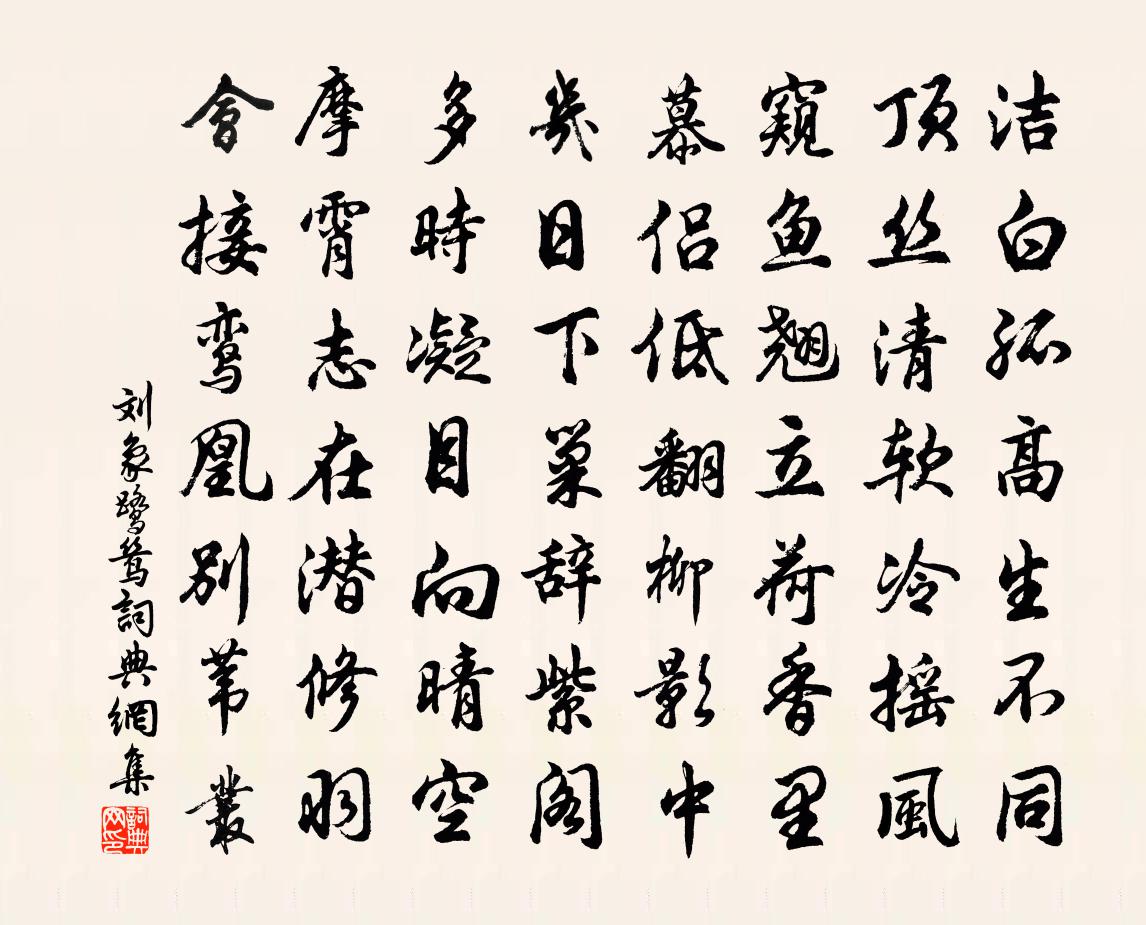 洁白孤高生不同
顶丝清软冷摇風
窥鱼翘立荷香里
慕侣低翻柳影中
幾日下巢辞紫阁
多時凝目向晴空
摩霄志在潜修羽
會接鸾凰別苇叢
刘象鹭鸶詞典網集
詞典网印